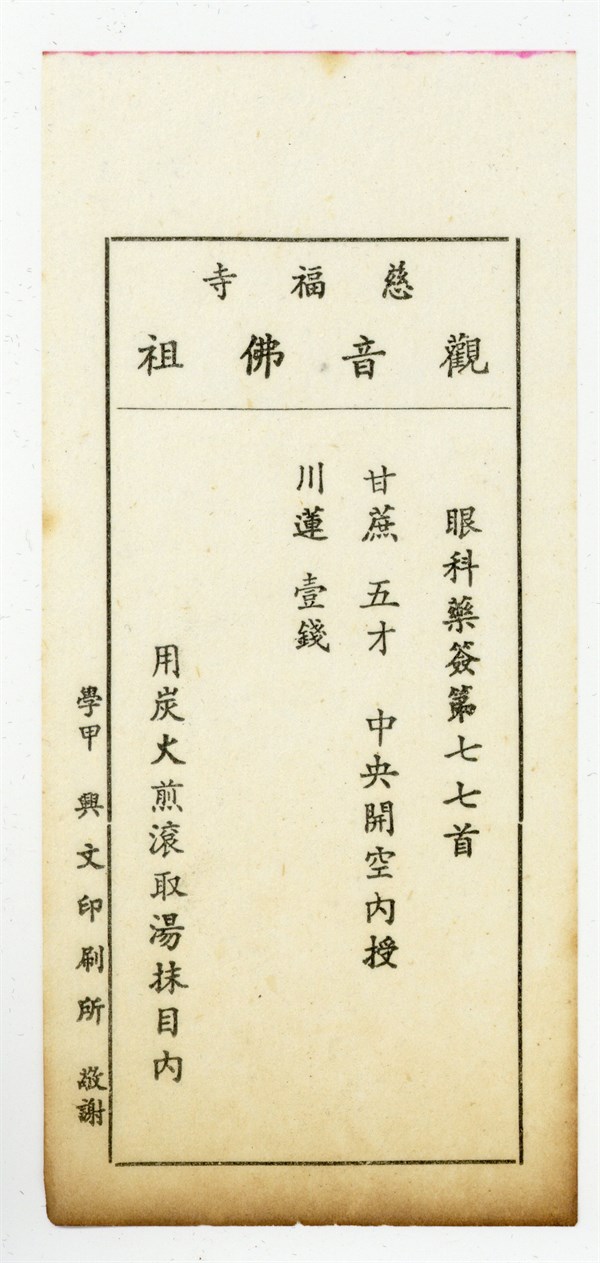 慈福寺
觀音佛祖
眼科藥簽第七七首
甘蔗 五才 中央開空內授
川蓮 壹錢
用炭火煎滾取湯抹目內
學甲 興文印刷所 敬謝